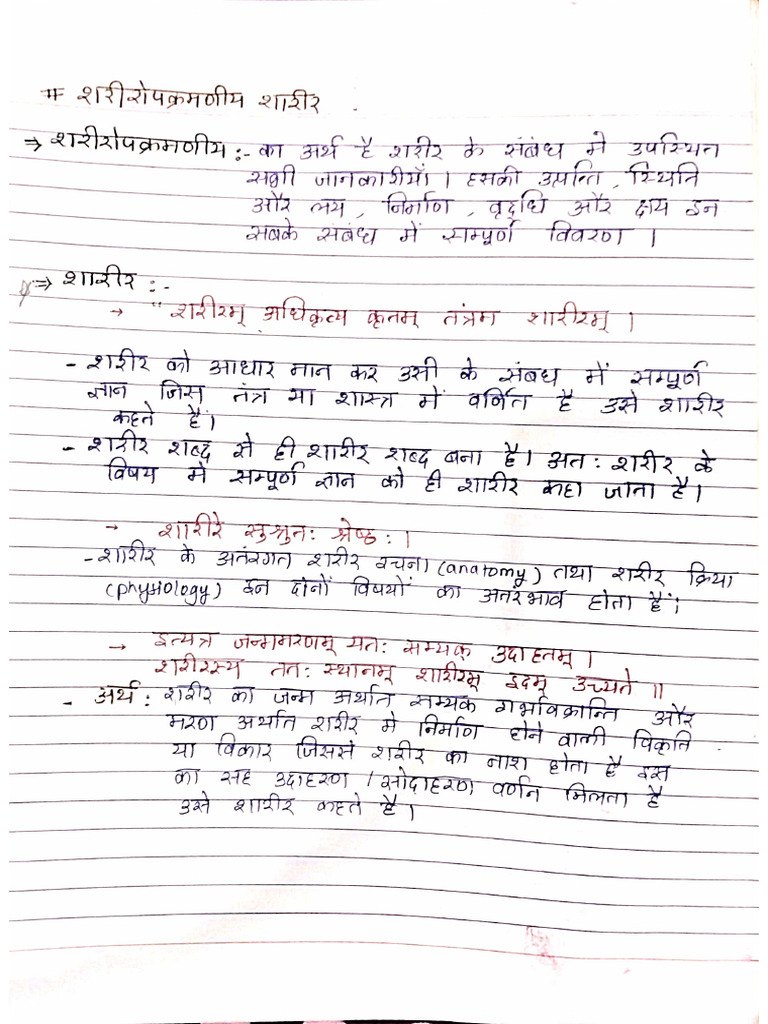 # शरीरोपक्रमणीय शारीर
→ शरीरोपक्रमणीय :- का अर्थ है शरीर के संबंध में उपस्थित
सभी जानकारीयाँ । इसकी उत्पत्ति , स्थिति
और लय , निर्माण , वृद्धि और क्षय इन
सबके संबंध में सम्पूर्ण विवरण ।
⇒ शारीर :-
→ " शरीरम् अधिकृत्य कृतम् तंत्रम शारीरम् ।
- शरीर को आधार मान कर उसी के संबध में सम्पूर्ण
ज्ञान जिस तंत्र या शास्त्र में वर्णित है उसे शारीर
कहते हैं।
- शरीर शब्द से ही शारीर शब्द बना है। अत: शरीर के
विषय में सम्पूर्ण ज्ञान को ही शारीर कहा जाता है।
→ शारीरे सुश्रुत: श्रेष्ठ: ।
- शारीर के अतंरगत शरीर रचना (anatomy) तथा शरीर क्रिया
(physiology) इन दोनों विषयों का अतंरभाव होता हैं।
→ इत्यत्र जन्ममरणम् यत: सम्यक् उदाहतम् ।
शरीरस्य तत: स्थानम् शारीरम् इदम् उच्यते ॥
- अर्थ : शरीर का जन्म अर्थात सम्यक गर्भाविक्रान्ति और
मरण अर्थात शरीर में निर्माण होने वाली विकृति
या विकार जिससे शरीर का नाश होता है इस
का सह उदाहरण / सोदाहरण वर्णन मिलता है
उसे शारीर कहते है।